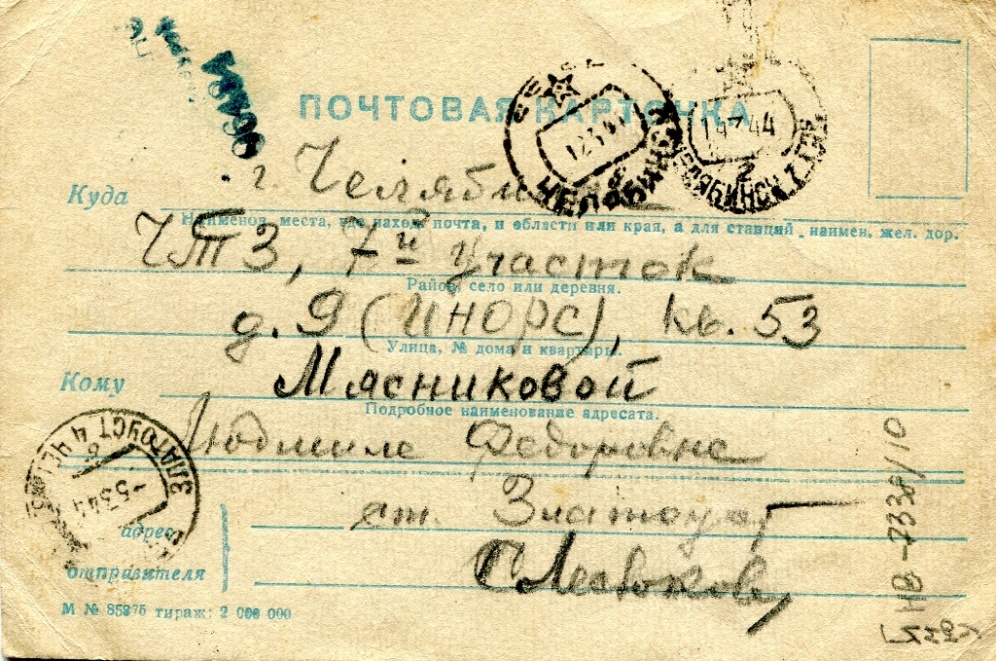 ПОЧТОВАЯ КАРТОЧКА
12 3 44
ЧЕЛЯБИНСК
44
2
ЧЕЛЯБИНСК
Куда г. Челябинск
Наименов. места, где наход. почта, и области или края, а для станций наимен. жел. дор.
ЧТЗ, 7й участок
Район, село или деревня.
д. 9 (ИНОРС), кв. 53
Улица, № дома и квартиры.
Кому Мясниковой
Подробное наименование адресата.
Людмиле Федоровне
ЗЛАТОУСТ 4 ЧЕЛ
-5 3 44
ст. Златоуст
адрес
отправителя
М № 85375 тираж: 2 000 000
НВ-7339/10